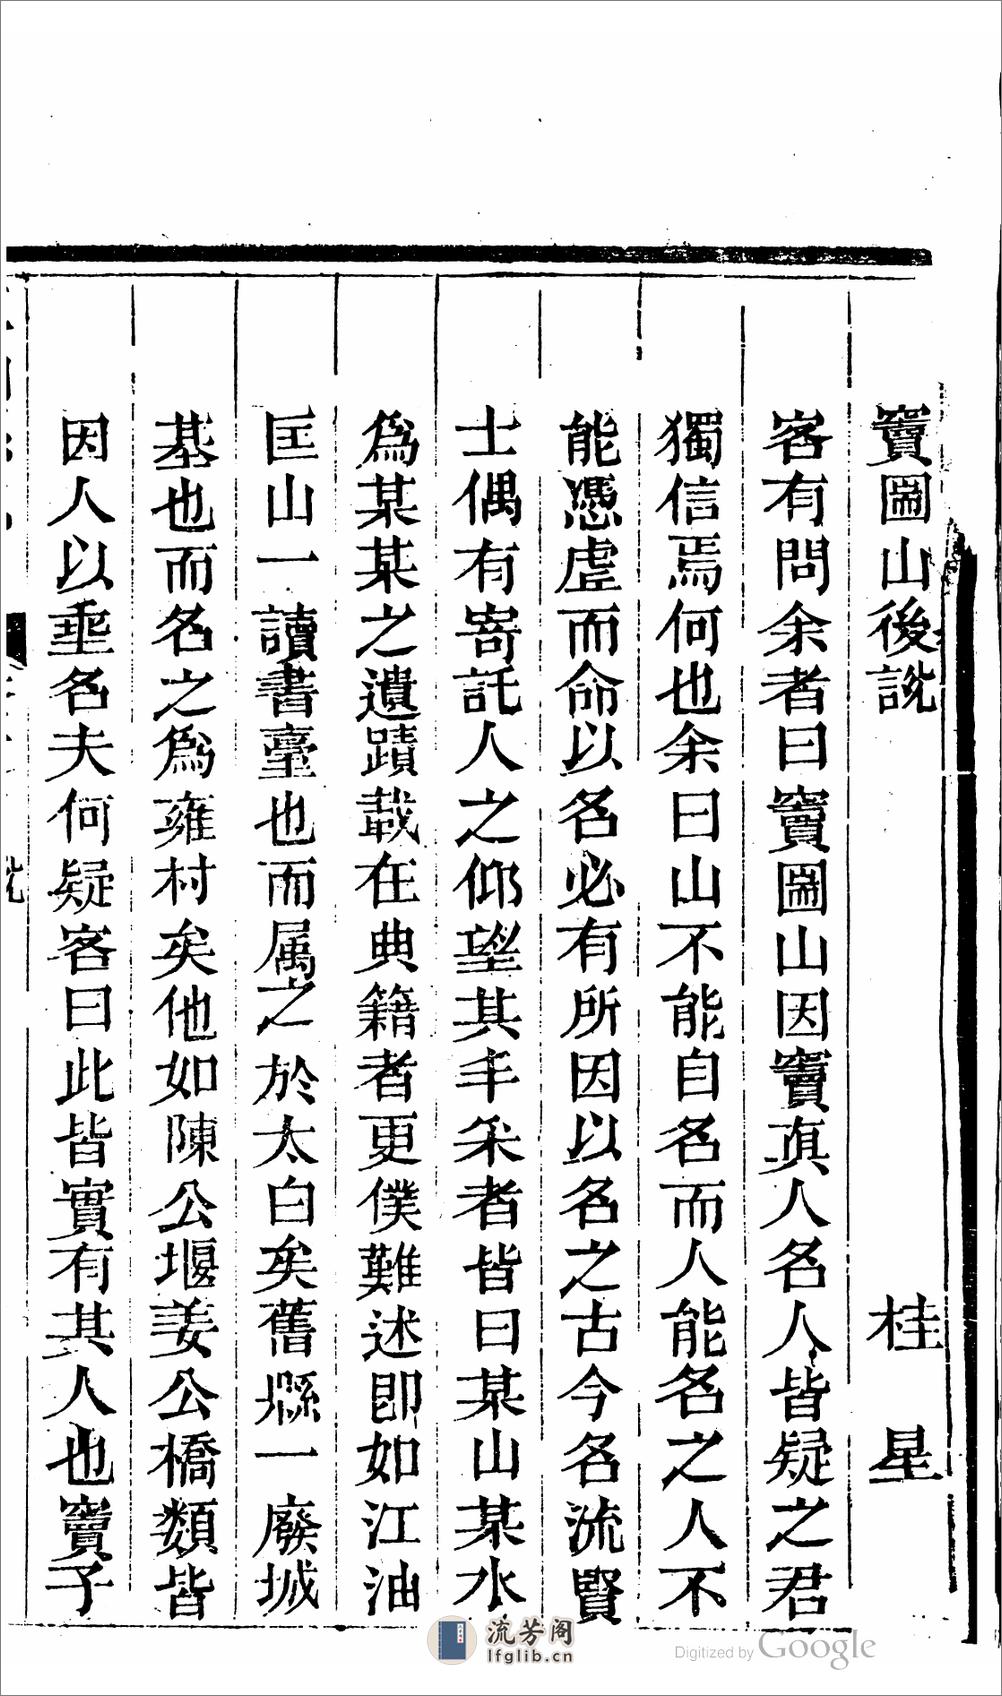 竇圌山後說　桂　星
客有問余者曰竇圌山因竇眞人名人皆疑之君
獨信焉何也余曰山不能自名而人能名之人不
能憑虛而命以名必有所因以名之古今名流賢
士偶有寄託人之仰望其丰采者皆曰某山某水
爲某某之遺蹟載在典籍者更僕難述卽如江油
匡山一讀書臺也而属之於太白矣舊縣一廢城
基也而名之爲雍村矣他如陳公堰姜公橋類皆
因人以垂名夫何疑客曰此皆實有其人也竇子
流芳阁
lfglib.cn
Digitized by Google